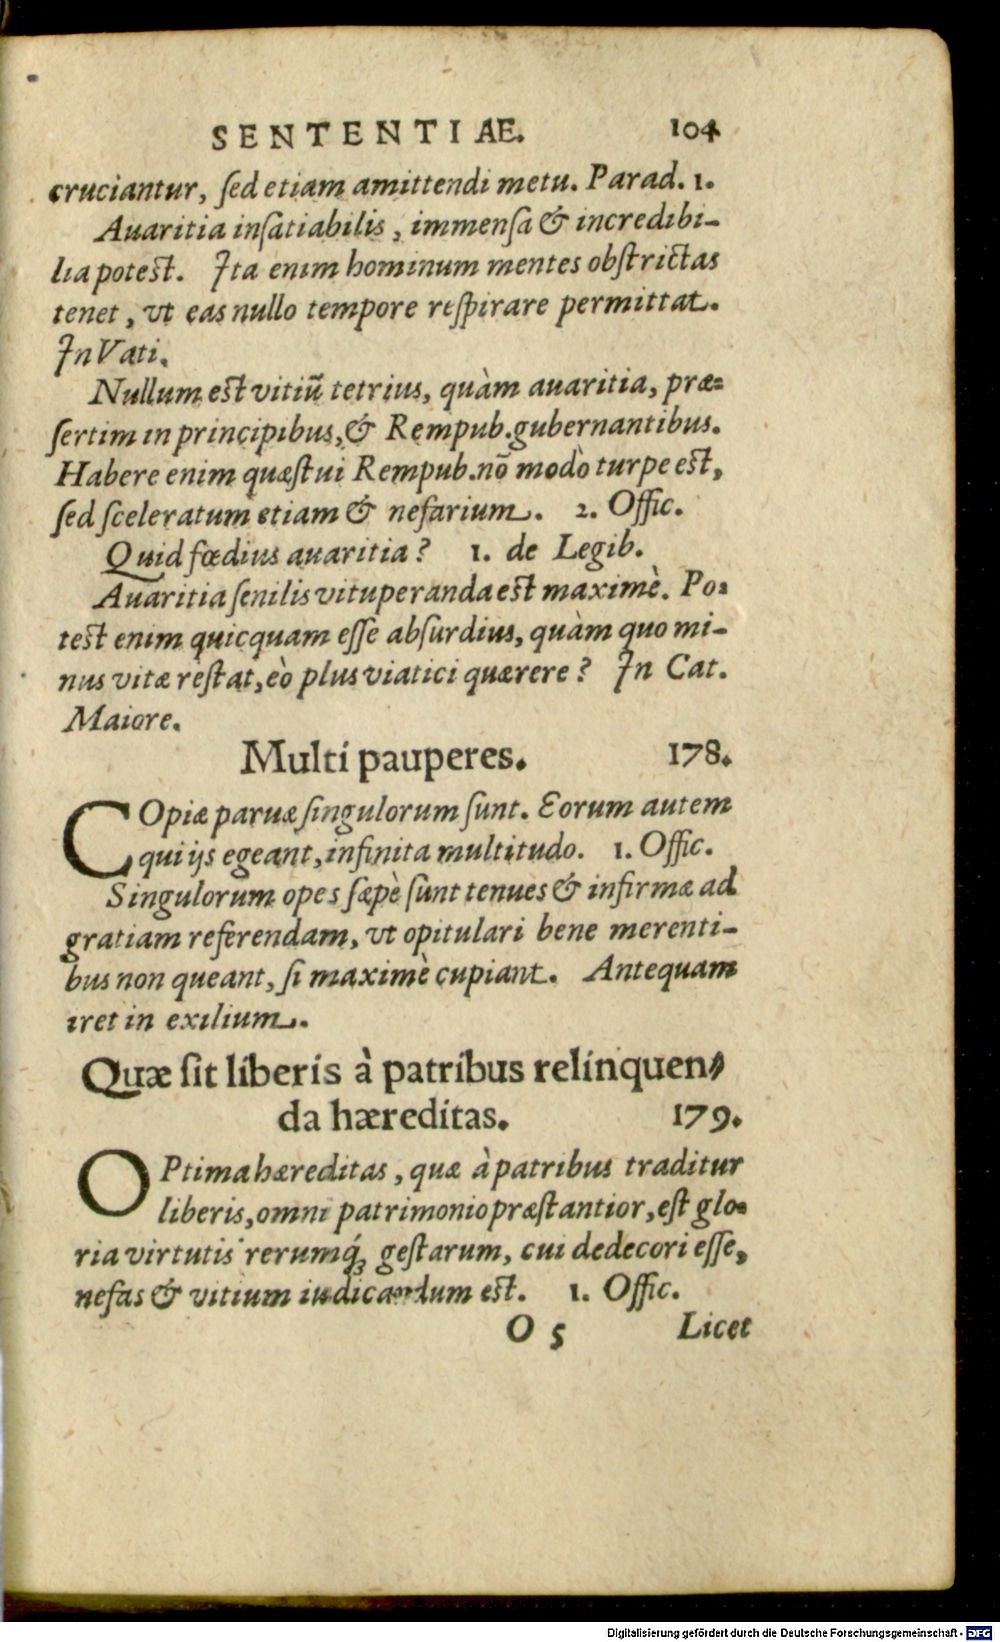 SENTENTIAE. 104
cruciantur, ſed etiam amittendi metu. Parad. 1.
Auaritia inſatiabilis, immenſa & incredibi-
lia poteſt. Ita enim hominum mentes obſtrictas
tenet, vt eas nullo tempore reſpirare permittat.
In Vati.
Nullum eſt vitiũ tetrius, quàm auaritia, præ-
ſertim in principibus, & Rempub. gubernantibus.
Habere enim quæſtui Rempub. nõ modò turpe eſt,
ſed ſceleratum etiam & nefarium. 2. Offic.
Quid fœdius auaritia? 1. de Legib.
Auaritia ſenilis vituperanda eſt maximè. Po-
teſt enim quicquam eſſe abſurdius, quàm quo mi-
nus vitæ reſtat, eò plus viatici quærere? In Cat.
Maiore.
Multi pauperes. 178.
COpiæ paruæ ſingulorum ſunt. Eorum autem
qui ijs egeant, infinita multitudo. 1. Offic.
Singulorum opes ſæpè ſunt tenues & infirmæ ad
gratiam referendam, vt opitulari bene merenti-
bus non queant, ſi maximè cupiant. Antequam
iret in exilium.
Quæ ſit liberis à patribus relinquen-
da hæreditas. 179.
OPtima hæreditas, quæ à patribus traditur
liberis, omni patrimonio præſtantior, eſt glo-
ria virtutis rerumq́ꝫ geſtarum, cui dedecori eſſe,
nefas & vitium iudicandum eſt. 1. Offic.
O 5 Licet
Digitalisierung gefördert durch die Deutsche Forschungsgemeinschaft - DFG